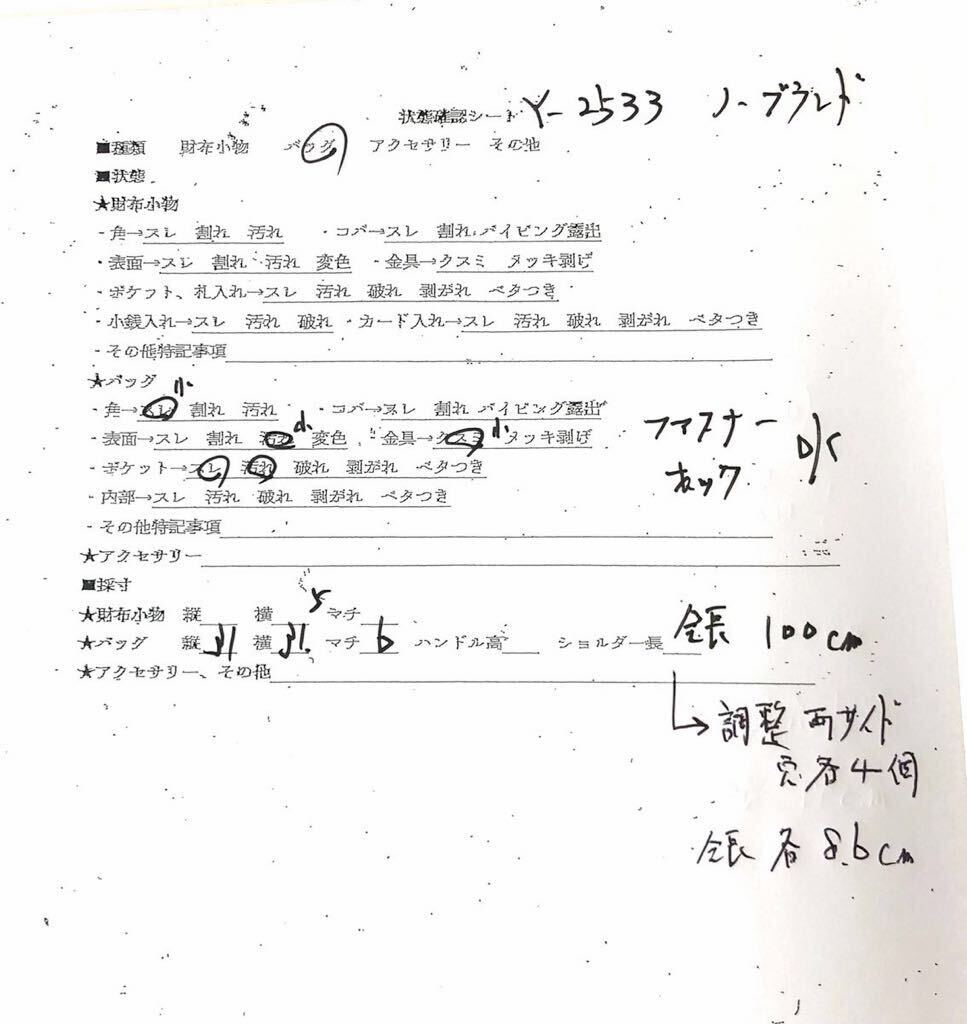 状態確認シート Y-2533 ノーブランド
■種類 財布小物 バッグ アクセサリー その他
■状態
★財布小物
・角→スレ 割れ 汚れ ・コバ→スレ 割れ パイピング露出
・表面→スレ 割れ 汚れ 変色 ・金具→クスミ メッキ剥げ
・ポケット、札入れ→スレ 汚れ 破れ 剥がれ ベタつき
・小銭入れ→スレ 汚れ 破れ ・カード入れ→スレ 汚れ 破れ 剥がれ ベタつき
・その他特記事項
★バッグ
小
・角→スレ 割れ 汚れ ・コバ→スレ 割れ パイピング露出
小 小
・表面→スレ 割れ 汚れ 変色 ・金具→クスミ メッキ剥げ
ファスナー
・ポケット→スレ 汚れ 破れ 剥がれ ベタつき
ホック
・内部→スレ 汚れ 破れ 剥がれ ベタつき
・その他特記事項
★アクセサリー
■採寸
★財布小物 縦 横 マチ
★バッグ 縦 31 横 31. マチ 6 ハンドル高 ショルダー長 全長 100cm
★アクセサリー、その他
→調整 両サイド
穴各4個
全長 各 8.6cm